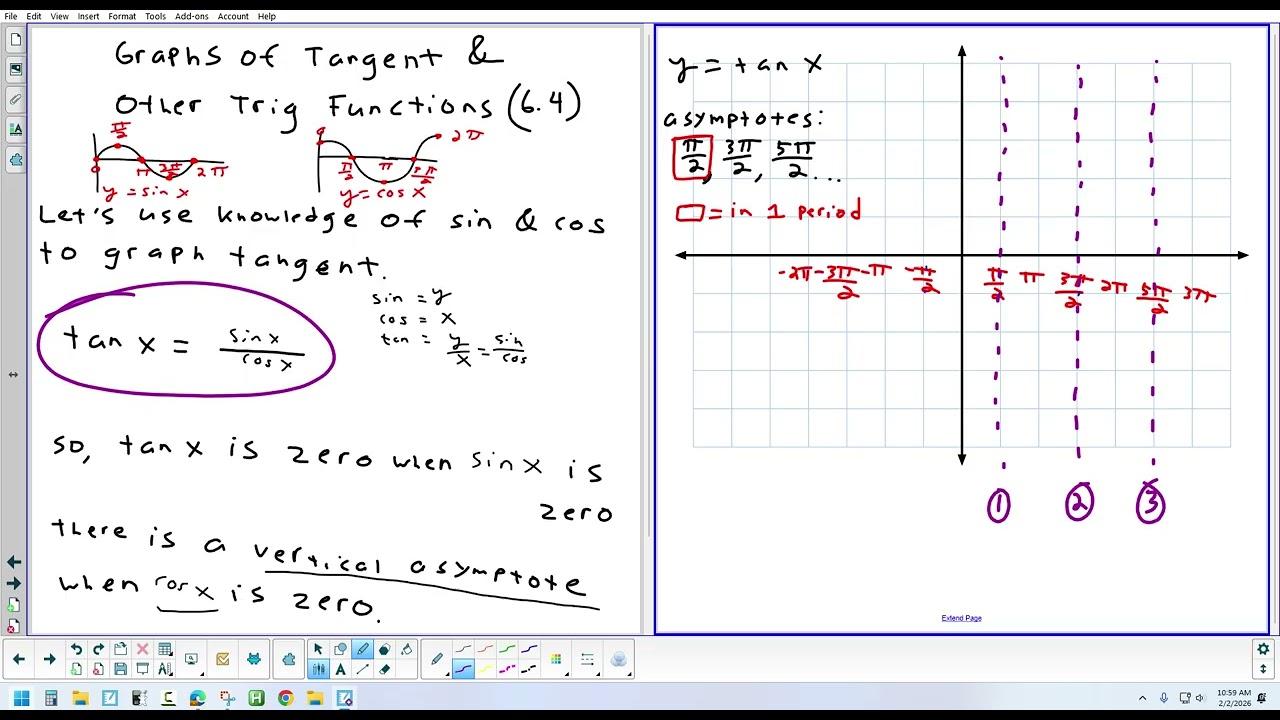 File Edit View Insert Format Tools Add-ons Account Help
Graphs of Tangent &
Other Trig Functions (6.4)
π/2
0 π 3π/2 2π
y = sin x
2π
π/2 π 3π/2
y = cos x
Let's use knowledge of sin & cos
to graph tangent.
tan x = sin x / cos x
sin = y
cos = x
tan = y/x = sin/cos
so, tan x is zero when sin x is
zero
there is a vertical asymptote
when cos x is zero.
y = tan x
asymptotes:
π/2, 3π/2, 5π/2 ...
= in 1 period
-2π -3π/2 -π -π/2 π/2 π 3π/2 2π 5π/2 3π
1 2 3
Extend Page
10:59 AM
2/2/2026